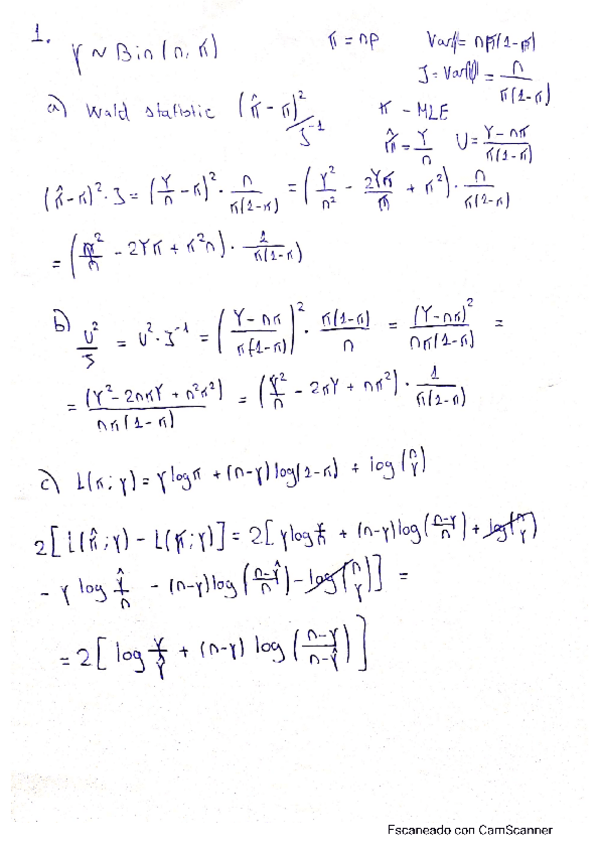 1.
Y ~ Bin(n, π)   π = np   Var = nπ(1-π)
J = Var(U) = n/(π(1-π))
a) Wald statistic (π̂ - π)²/J⁻¹   π - MLE
π̂ = Y/n   U = (Y-nπ)/(π(1-π))
(π̂-π)²·J = (Y/n - π)² · n/(π(1-π)) = (Y²/n² - 2Yπ/n + π²) · n/(π(1-π))
= (Y²/n - 2Yπ + π²n) · 1/(π(1-π))
b) U²/J = U²·J⁻¹ = ((Y-nπ)/(π(1-π)))² · π(1-π)/n = (Y-nπ)²/(nπ(1-π)) =
= (Y²-2nπY + n²π²)/(nπ(1-π)) = (Y²/n - 2πY + nπ²) · 1/(π(1-π))
c) l(π;y) = y log π + (n-y) log(1-π) + log(n y)
2[l(π̂;y) - l(π;y)] = 2[y log y/n + (n-y) log((n-y)/n) + log(n y)
- y log ŷ/n - (n-y) log((n-ŷ)/n) - log(n y)] =
= 2[log y/ŷ + (n-y) log((n-y)/(n-ŷ))]
Escaneado con CamScanner